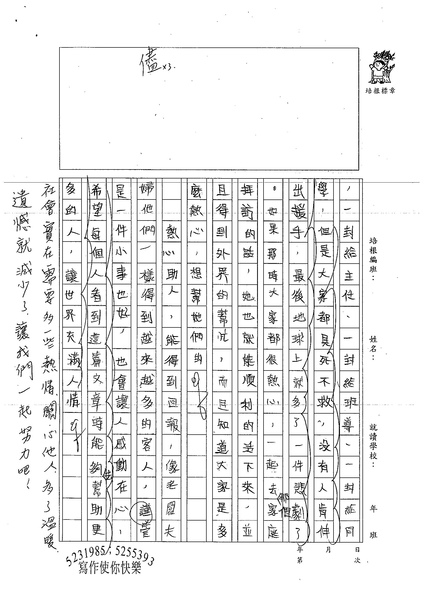 儘 x3.
培根標章
培根編班：
姓名：
就讀學校：
年 班
日 次
月
年 第
，一封給主任、一封給班導、一封給同
學，但是大家都見死不救，沒有人肯伸
出援手，最後地球上就多了一件悲劇了
。如果那時大家都很熱心，一起去那個家庭
拜訪的話，她也就能順利的活下來，並
且得到外界的幫忙，而且知道大家是多
麼熱心，想幫她們的。
熱心助人，能得到回報，像老闆夫
婦他們一樣得到越來越多的客人，儘管
是一件小事也好，也會讓人感動在心，
希望每個人看到這篇文章時能夠幫助更
多的人，讓世界充滿人情。
社會實在需要多一些熱情，關心他人，多了溫暖
遺憾就減少了，讓我們一起努力吧！
5231985/5255393
寫作使你快樂